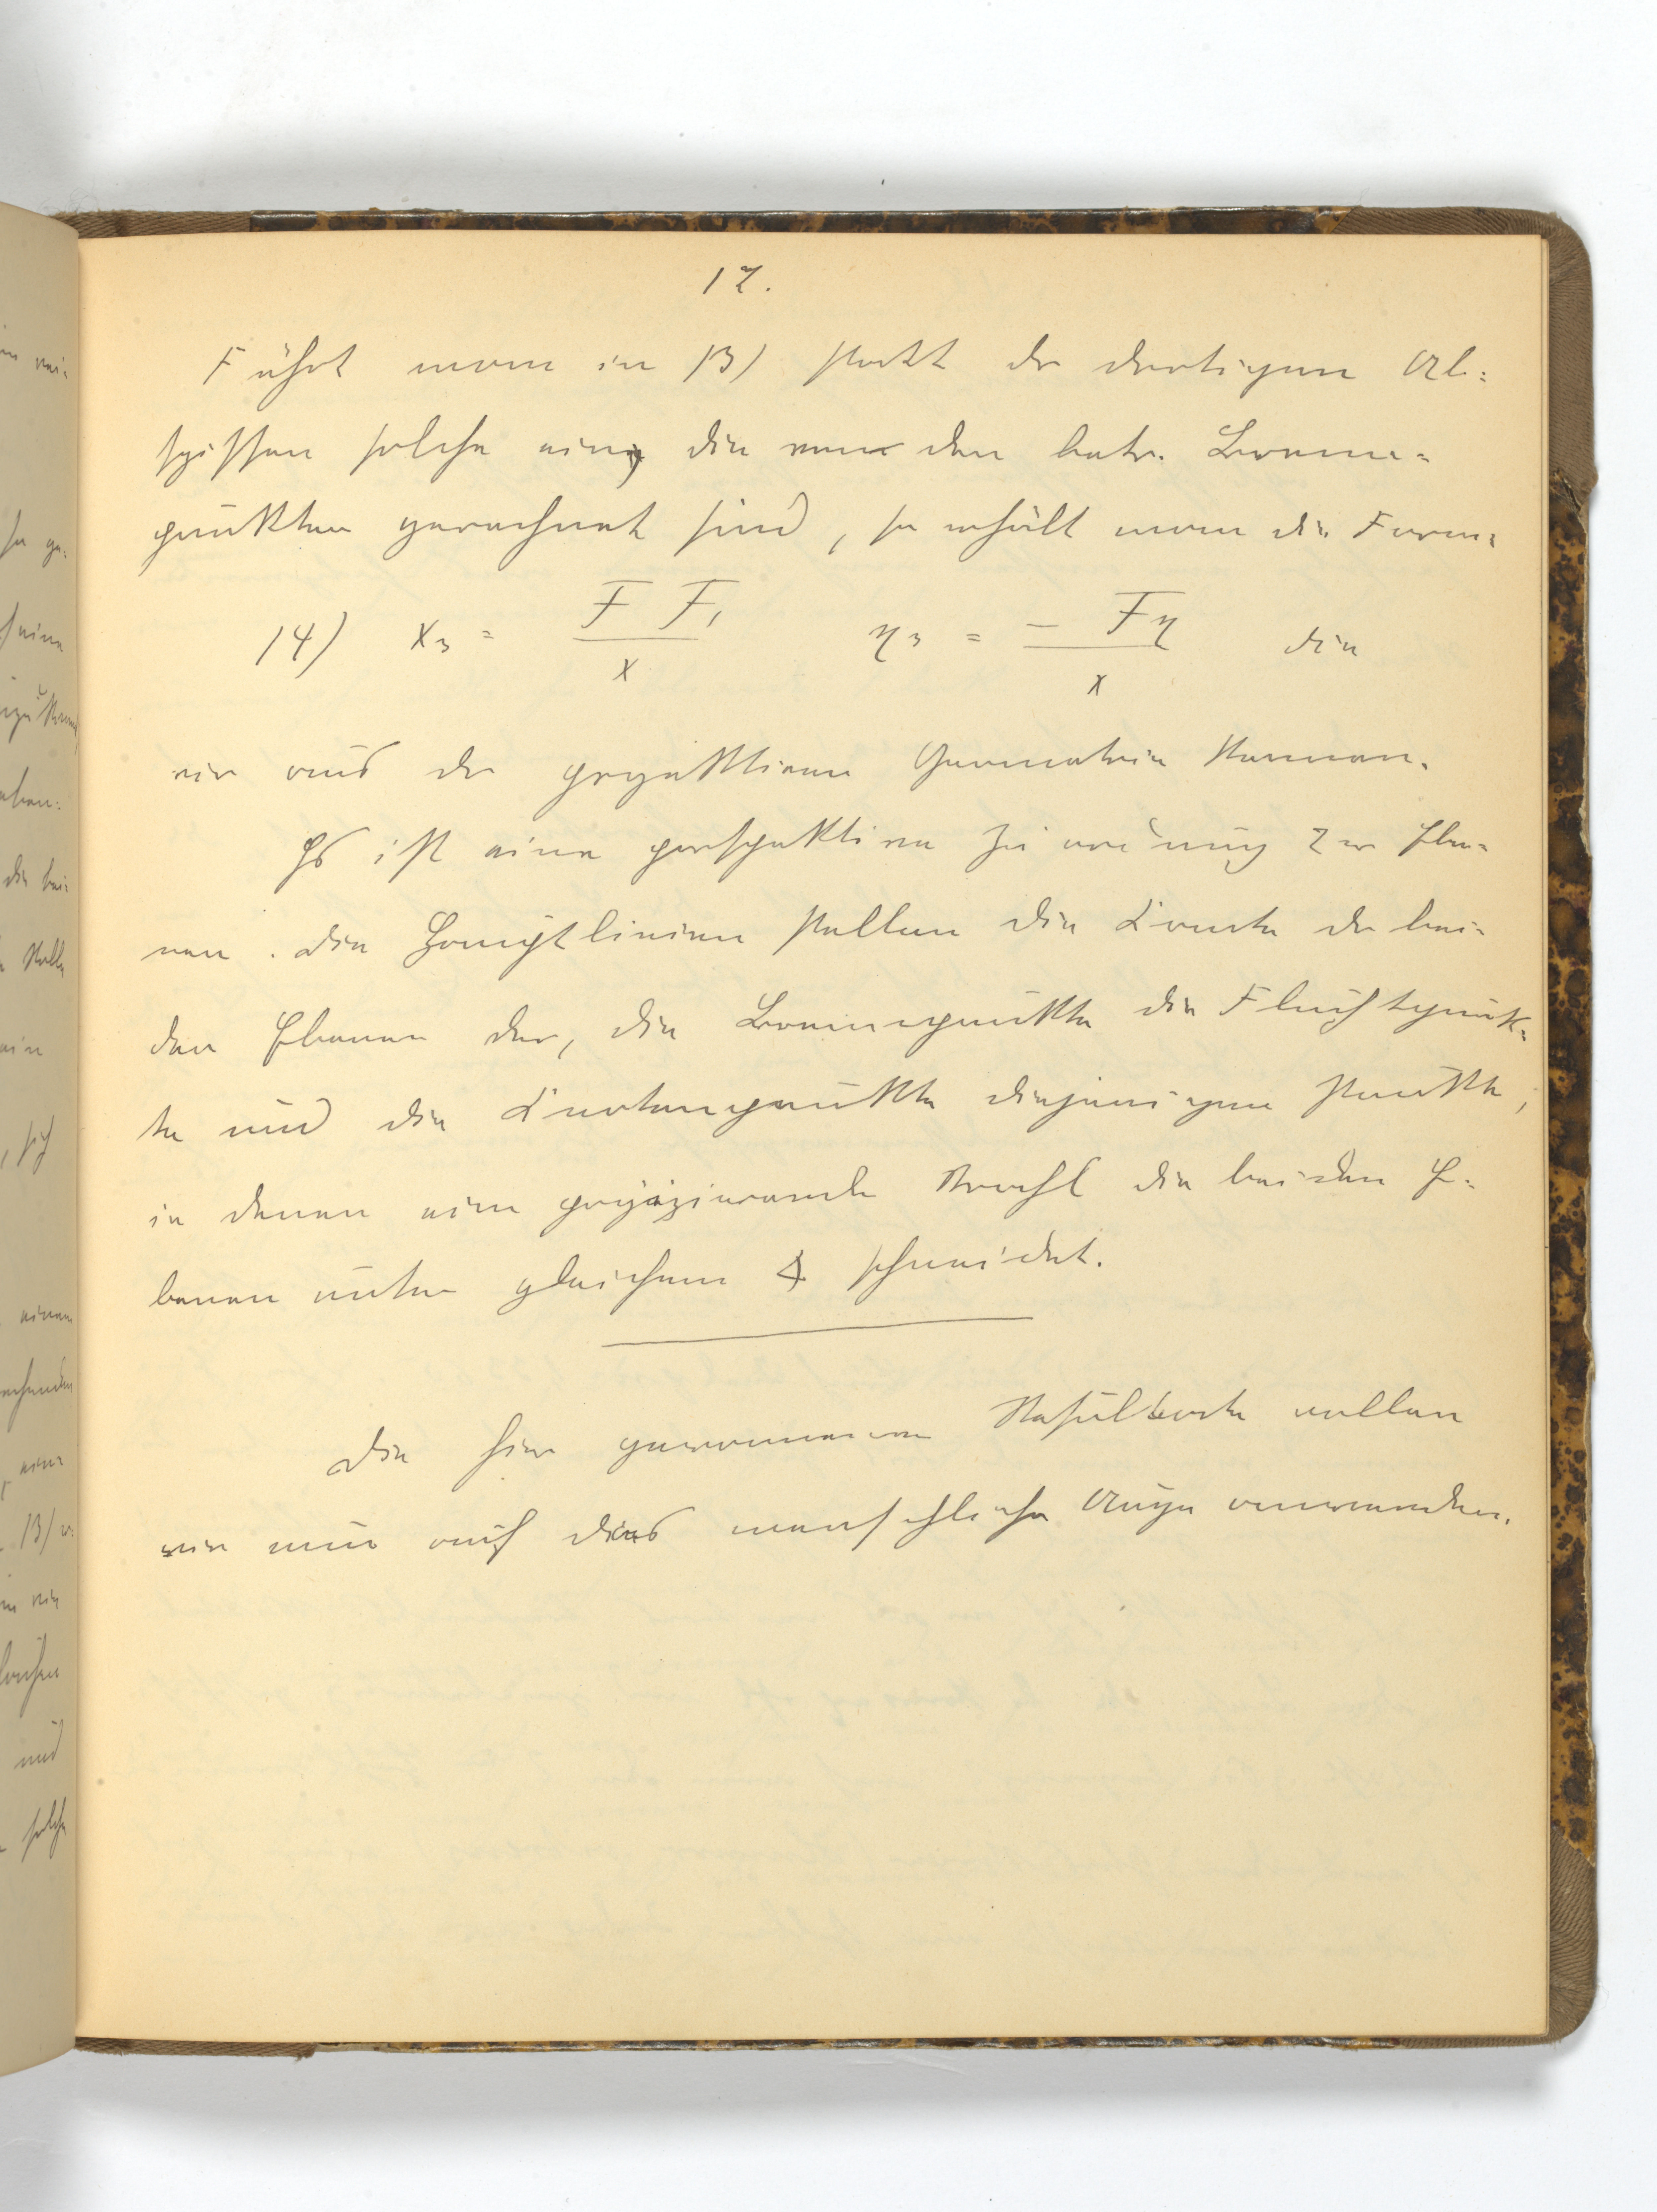 12.
Führt man in 13) statt der dortigen Ab-
szissen solche ein, die von den betr. Brenn-
punkten gerechnet sind, so erhält man die Form:
14) x₃ = F F₁ / x η₃ = - Fη / x die
wir aus der projektiven Geometrie kennen.
Es ist eine perspektive Zuordnung 2er Ebe-
nen. Die Hauptlinien stellen die Kante der bei-
den Ebenen dar, die Brennpunkte die Fluchtpunk-
te und die Knotenpunkte diejenigen Punkte,
in denen ein projizierende Strahl die beiden E-
benen unter gleichem ∢ schneidet.
Die hier gewonnenen Resultate wollen
wir nun auf das menschliche Auge anwenden.